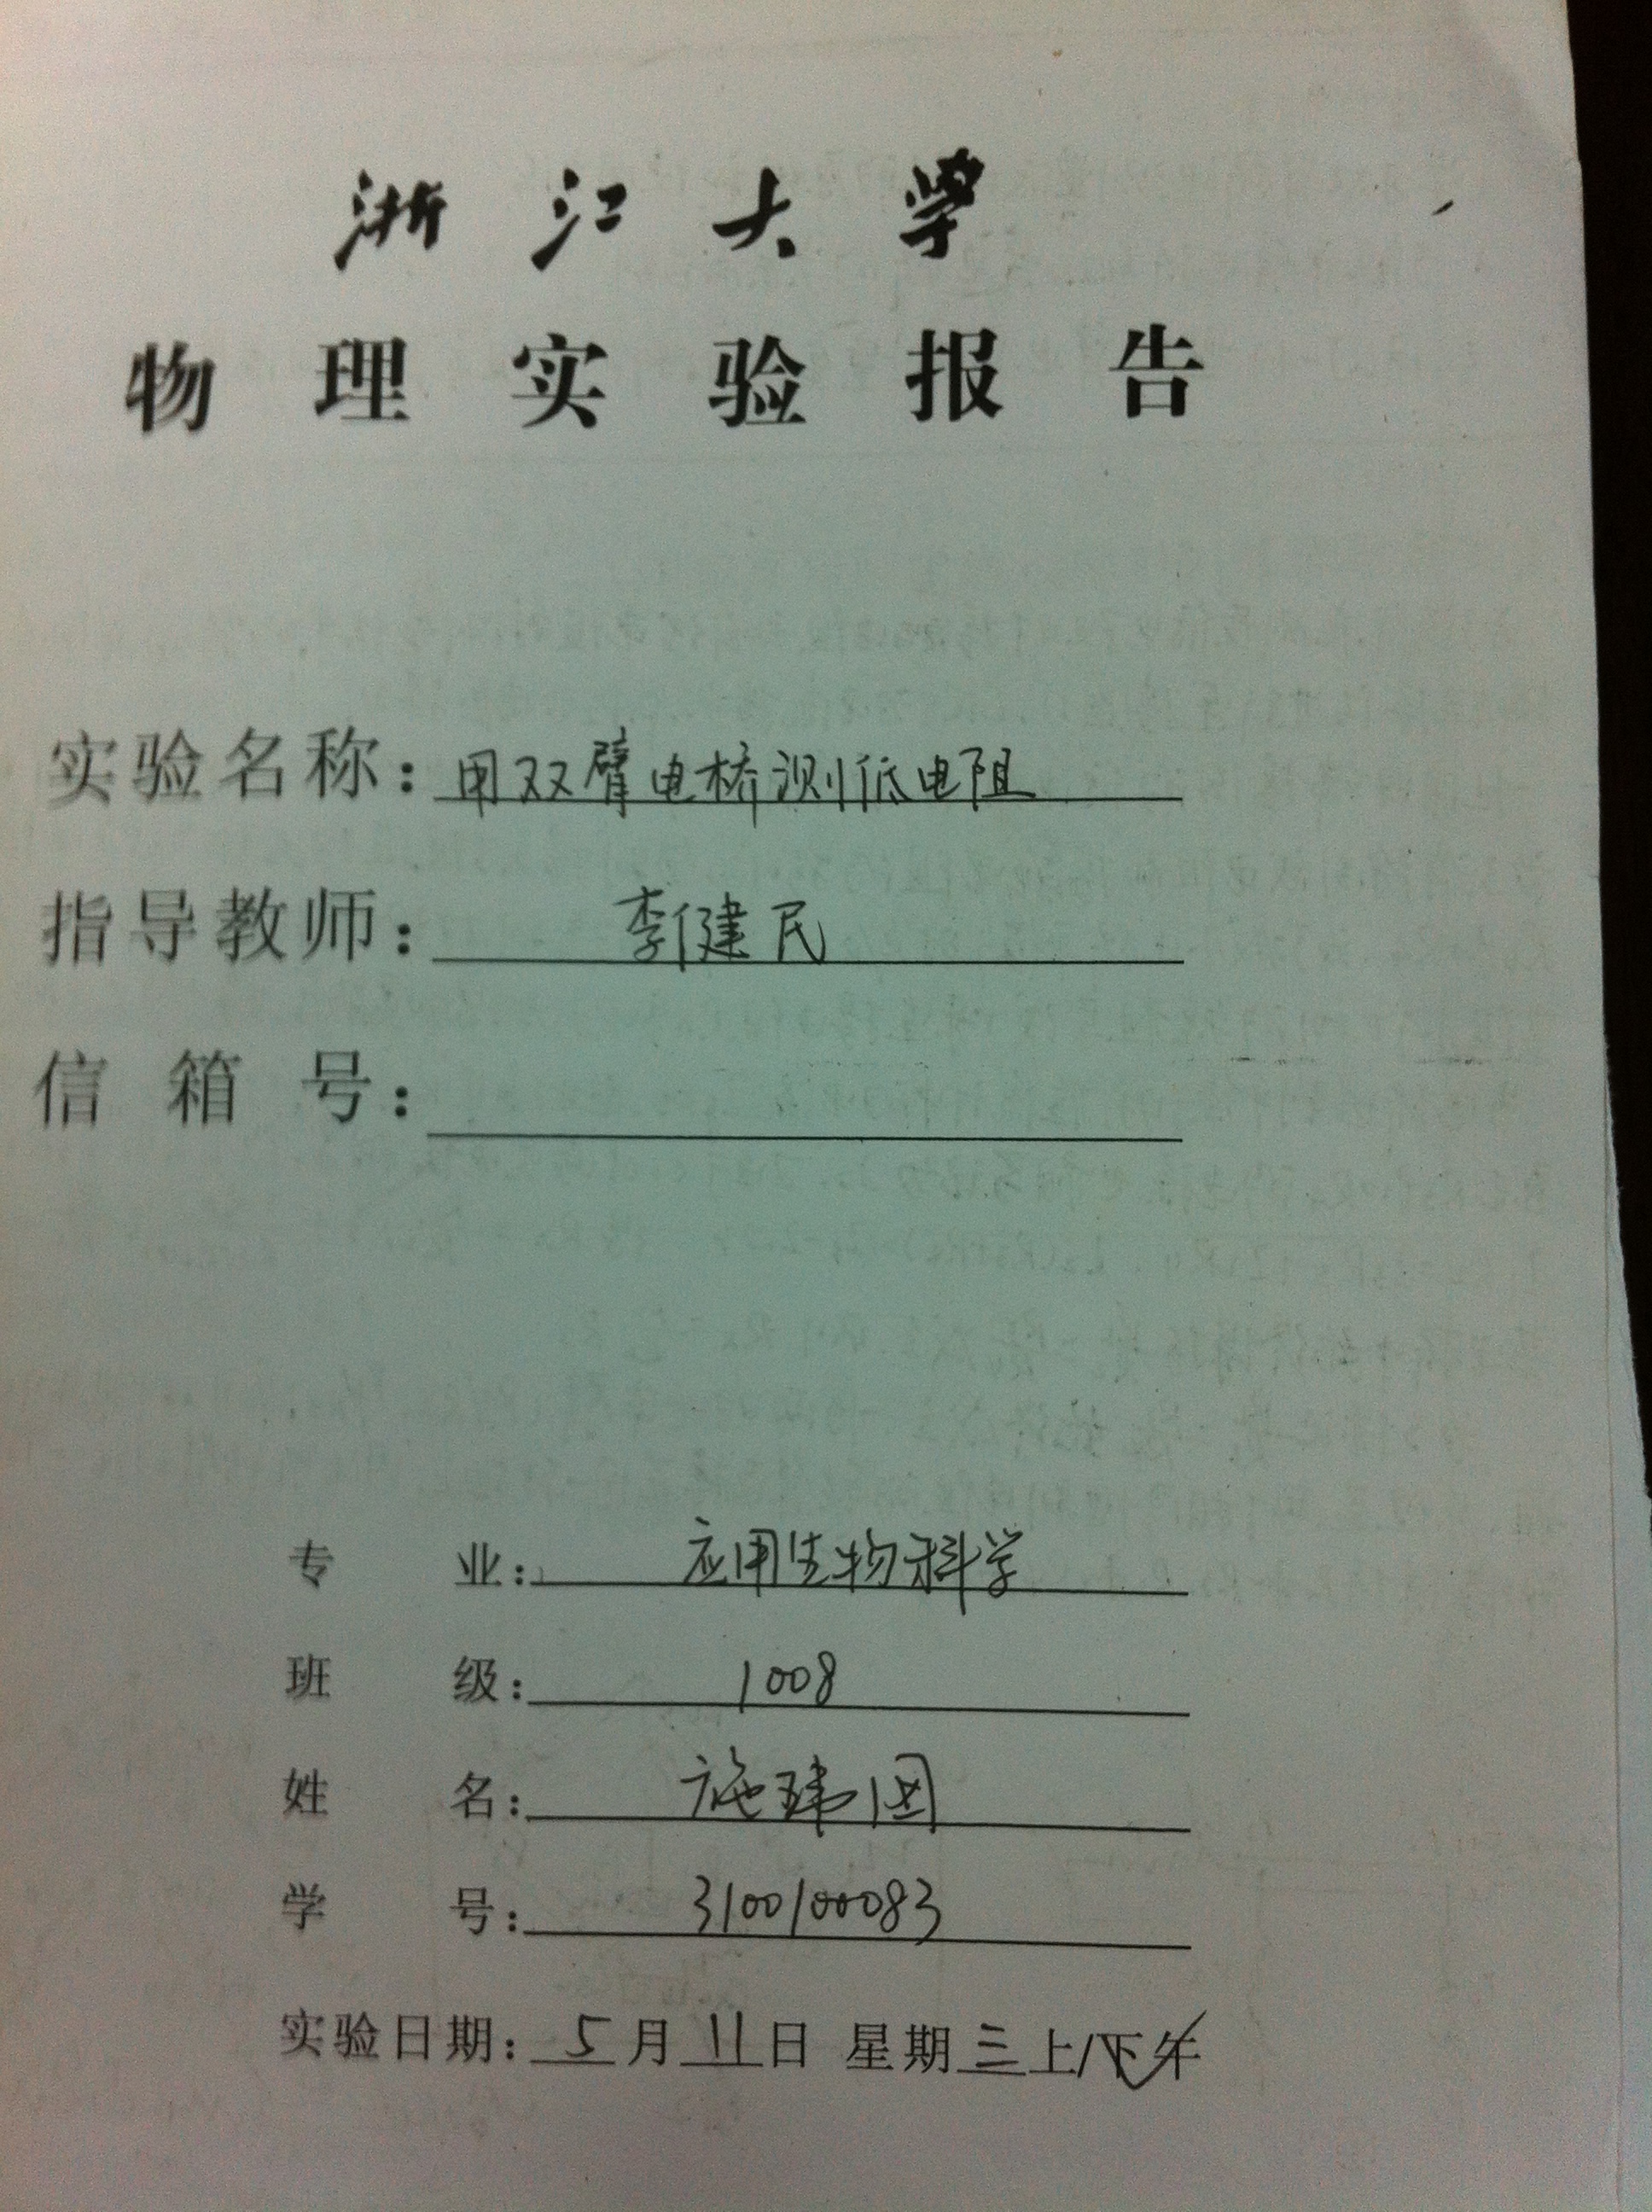 浙江大学
物理实验报告
实验名称：用双臂电桥测低电阻
指导教师：李健民
信箱号：
专业：应用生物科学
班级：1008
姓名：施玮
学号：3100100083
实验日期：5月11日 星期三上/下午